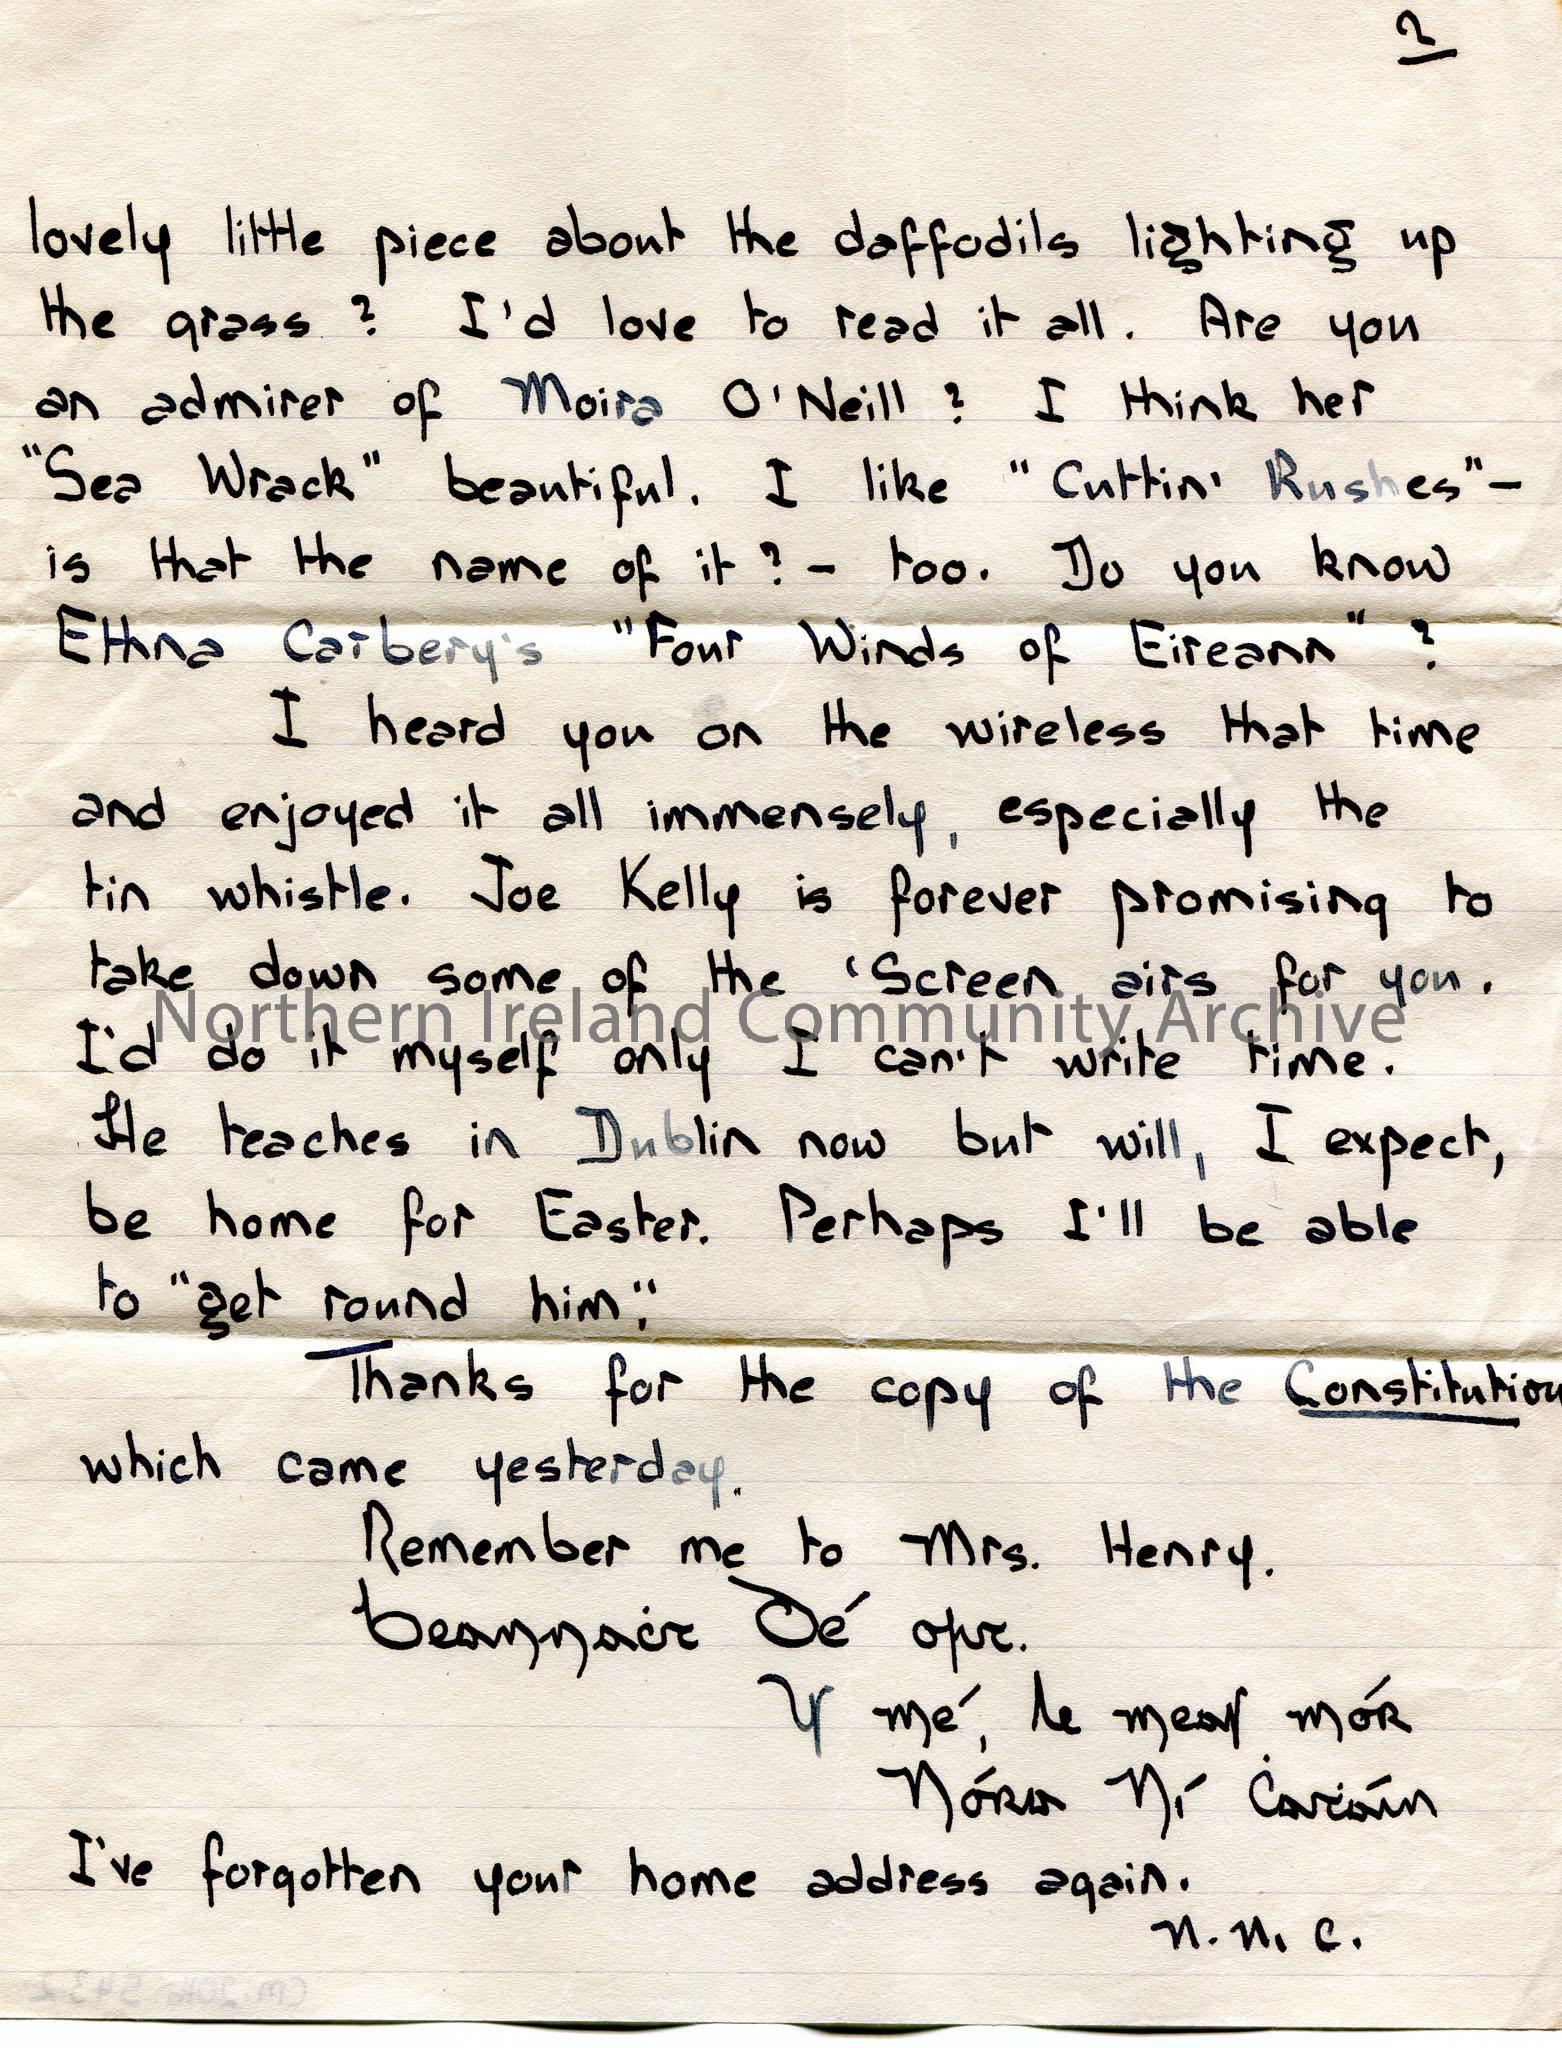 2
lovely little piece about the daffodils lighting up
the grass? I'd love to read it all. Are you
an admirer of Moira O'Neill? I think her
"Sea Wrack" beautiful. I like "Cuttin' Rushes"–
is that the name of it? – too. Do you know
Ethna Carbery's "Four Winds of Eireann"?
I heard you on the wireless that time
and enjoyed it all immensely, especially the
tin whistle. Joe Kelly is forever promising to
take down some of the 'Screen airs for you.
Northern Ireland Community Archive
I'd do it myself only I can't write time.
He teaches in Dublin now but will, I expect,
be home for Easter. Perhaps I'll be able
to "get round him".
Thanks for the copy of the Constitution
which came yesterday.
Remember me to Mrs. Henry.
Beannaċt Dé ort.
Is mé, le meas mór
Nóra Ní Ċatáin
I've forgotten your home address again.
N. N. C.
CM 2016 543 2